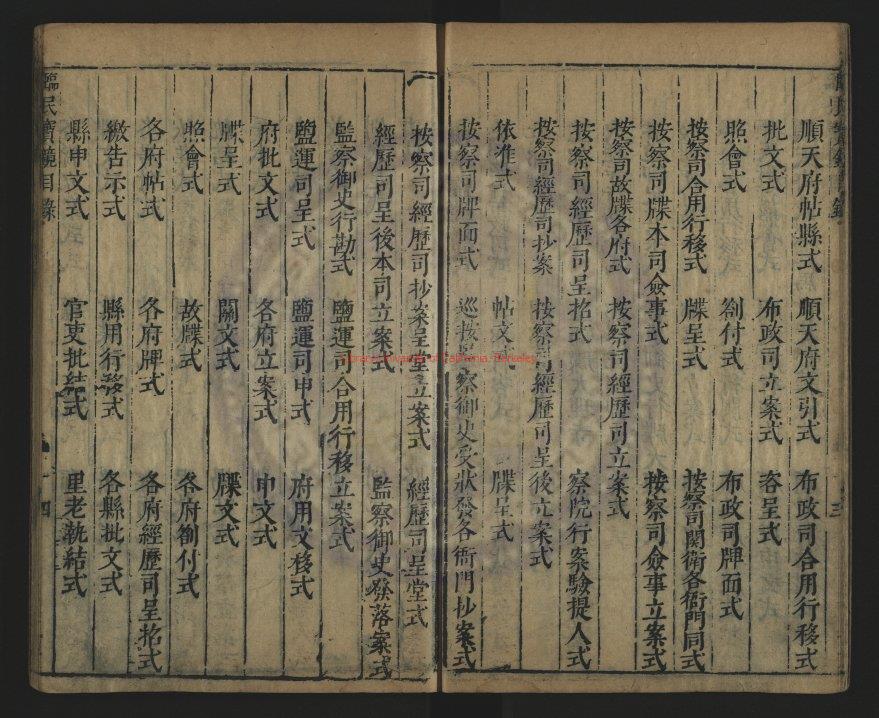 臨民寶鏡目錄
三
順天府帖縣式 順天府文引式 布政司合用行移式
批文式 布政司立案式 咨呈式
照會式 劄付式 布政司牌面式
按察司合用行移式 牒呈式 按察司關衛各衙門同式
按察司牒本司僉事式 按察司僉事立案式
按察司故牒各府式 按察司經歷司立案式
按察司經歷司呈招式 察院行案驗提人式
按察司經歷司抄案 按察司經歷司呈後立案式
依准式 帖文式 牒呈式
按察司牌面式 巡按監察御史受狀發各衙門抄案式
按察司經歷司抄案呈堂立案式 經歷司呈堂式
經歷司呈後本司立案式 監察御史發落案式
監察御史行勘式 鹽運司合用行移立案式
鹽運司呈式 鹽運司申式 府用文移式
府批文式 各府立案式 申文式
牒呈式 關文式 牒文式
照會式 故牒式 各府劄付式
各府帖式 各府牌式 各府經歷司呈招式
繳告示式 縣用行移式 各縣批文式
縣申文式 官吏批結式 里老執結式
臨民寶鏡目錄
十四
Library, University of California, Berkeley